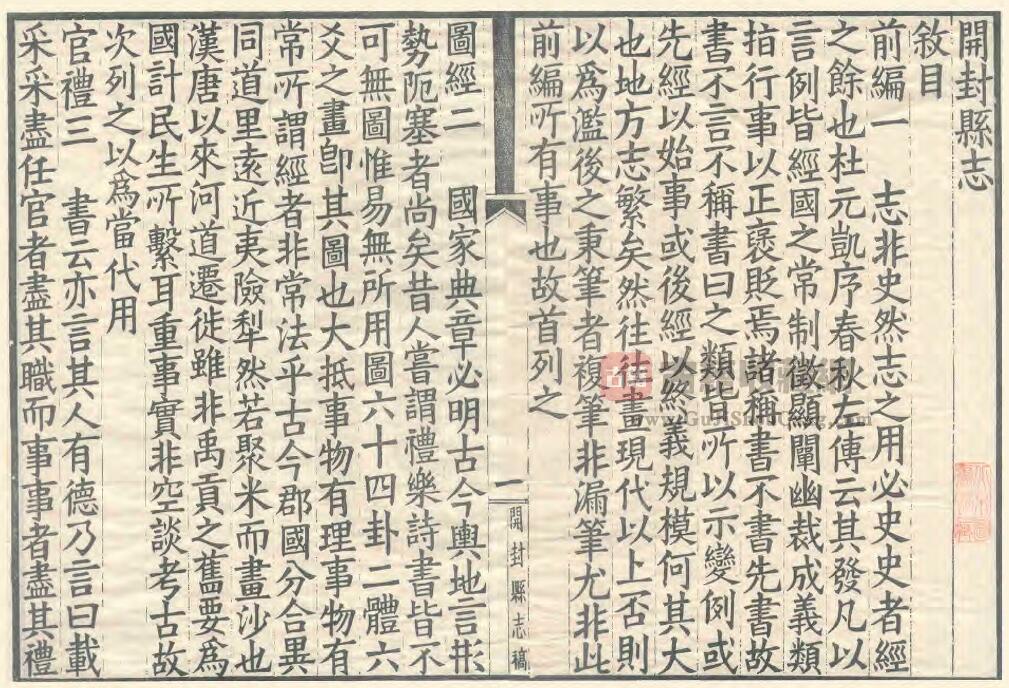 開封縣志
敘目
前編一　志非史然志之用必史史者經
之餘也杜元凱序春秋左傳云其發凡以
言例皆經國之常制徵顯闡幽裁成義類
指行事以正褒貶焉諸稱書不書先書故
書不言不稱書曰之類皆所以示變例或
先經以始事或後經以終義規模何其大
也地方志繁矣然往往畫現代以上否則
以爲濫後之秉筆者複筆非漏筆尤非此
前編所有事也故首列之
一
開封縣志稿
圖經二　國家典章必明古今輿地言形
勢阨塞者尚矣昔人嘗謂禮樂詩書皆不
可無圖惟易無所用圖六十四卦二體六
爻之畫卽其圖也大抵事物有理事物有
常所謂經者非常法乎古今郡國分合異
同道里遠近夷險犁然若聚米而畫沙也
漢唐以來河道遷徙雖非禹貢之舊要爲
國計民生所繫耳重事實非空談考古故
次列之以爲當代用
官禮三　書云亦言其人有德乃言曰載
采采盡任官者盡其職而事事者盡其禮
古籍
www.GuJiShuCang.com